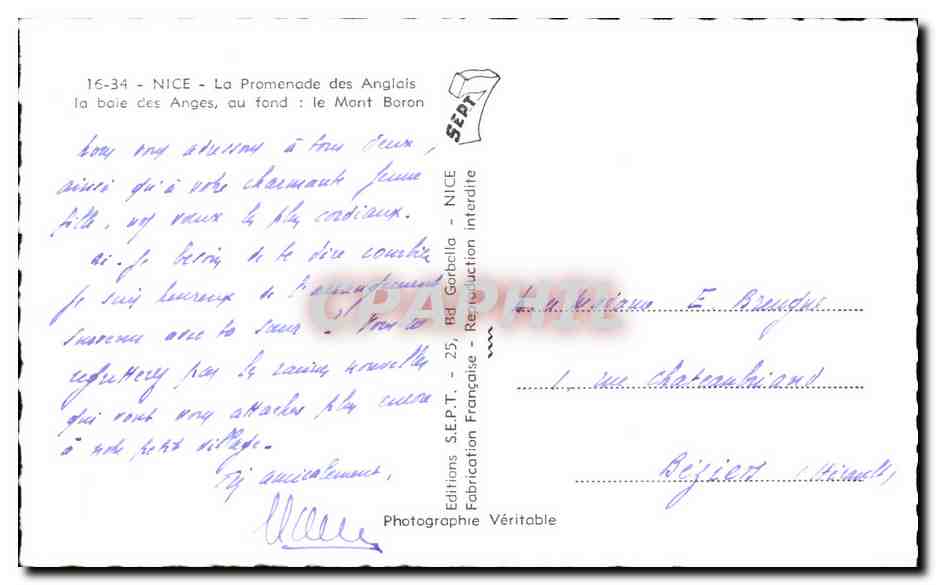 16-34 - NICE - La Promenade des Anglais
la baie des Anges, au fond : le Mont Boron
Nous vous adressons à tous deux,
ainsi qu'à votre charmante jeune
fille, nos vœux les plus cordiaux.
ai-je besoin de te dire combien
je suis heureux de l'arrangement
survenu avec ta sœur ? Vous ne
regretterez pas les racines nouvelles
qui vont vous attacher plus encore
à notre petit village.
amicalement,
SEPT
Editions S.E.P.T. - 25, Bd Gorbella - NICE
Fabrication Française - Reproduction interdite
CPAPHIL
Madame E
1, rue Chateaubriand
Béziers (Hérault)
Photographie Véritable